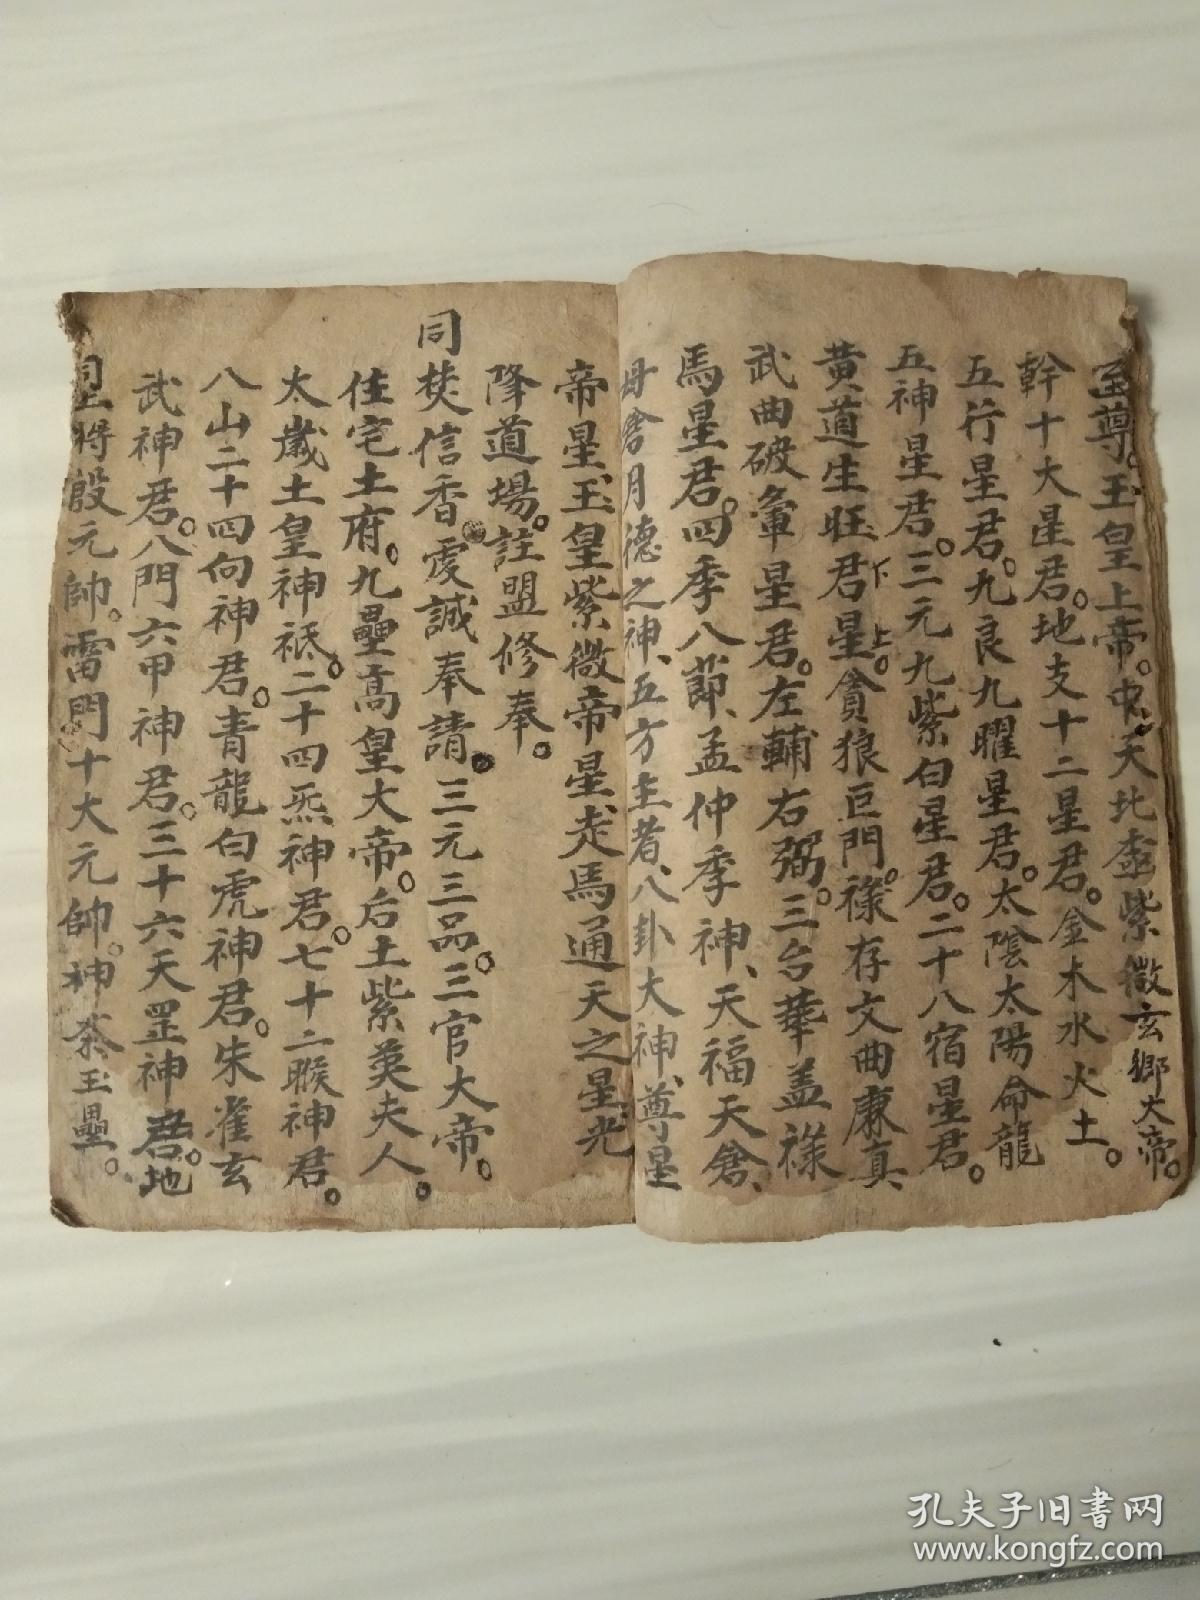 至尊。玉皇上帝。中天北極紫微玄鄉大帝。
幹十大星君。地支十二星君。金木水火土。
五行星君。九良九曜星君。太陰太陽命龍
五神星君。三元九紫白星君。二十八宿星君。
黃道生旺、君星貪狼巨門。祿存文曲廉真
下 上
武曲破軍星君。左輔右弼。三台華蓋祿
馬星君。四季八節、孟仲季神、天福天倉、
母倉月德之神、五方主者、八卦大神、尊星
帝星、玉皇紫微帝星走馬通天之星光
降道場。註盟修奉。
同焚信香。虔誠奉請。三元三品。三官大帝。
住宅土府。九壘高皇大帝。后土紫英夫人。
太歲土皇神祇。二十四炁神君。七十二候神君。
八山二十四向神君。青龍白虎神君。朱雀玄
武神君。八門六甲神君。三十六天罡神君。地
司上將殷元帥。雷門十大元帥。神荼玉壘。
孔夫子旧书网
www.kongfz.com